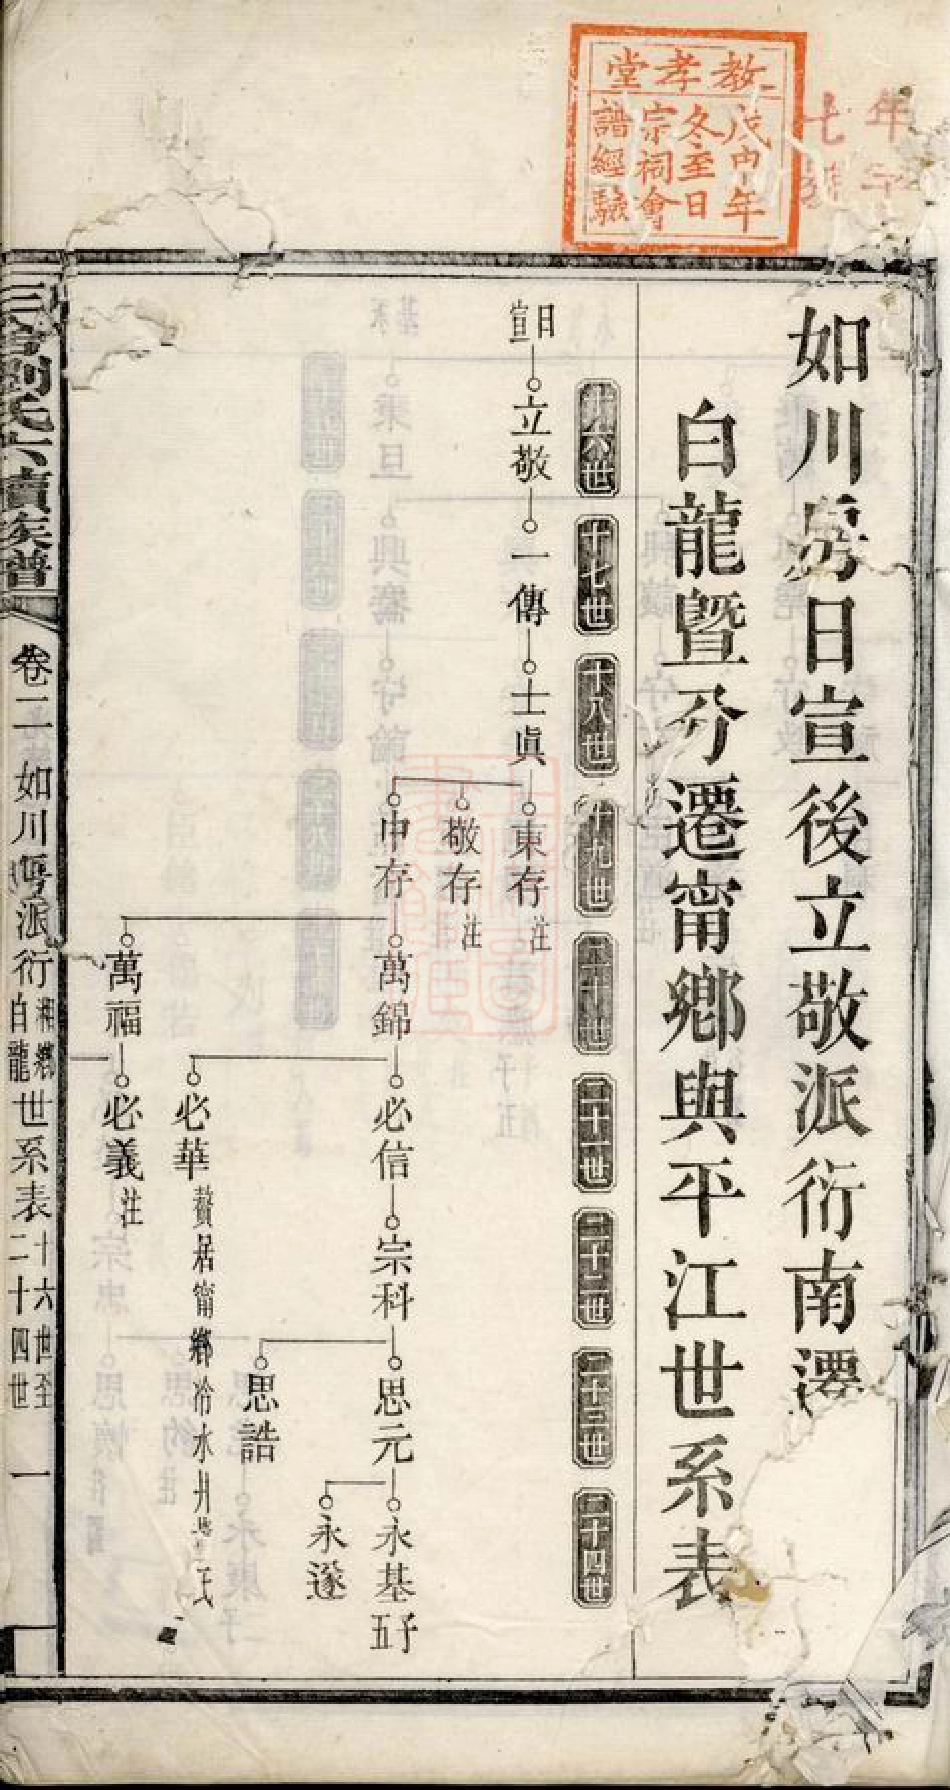 教孝堂
戊申年
冬至日
宗祠會
譜經驗
年
七
如川房日宣後立敬派衍南遷
白龍暨分遷甯鄉與平江世系表
十六世
十七世
十八世
十九世
二十世
二十一世
二十二世
二十三世
二十四世
日宣
立敬
一傳
士眞
東存 注
敬存 注
中存
萬錦
萬福
必信
必華 贅居甯鄉冷水井
氏
必義 注
宗科
思元
思誥
永基 五子
永遂
劉氏六續族譜
卷二 如川房派衍湘鄉白龍世系表 十六世至二十四世 一